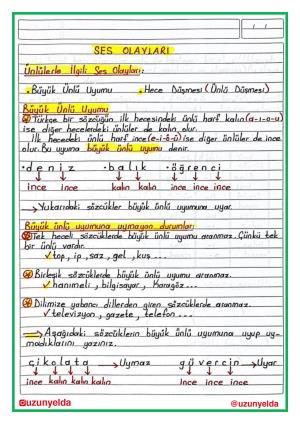 SES OLAYLARI
Ünlülerle İlgili Ses Olayları:
Büyük Ünlü Uyumu
Hece Düşmesi (Ünlü Düşmesi)
Büyük Ünlü Uyumu
Türkçe bir sözcüğün ilk hecesindeki ünlü harf kalın(a-ı-o-u)
ise diğer hecelerdeki ünlüler de kalın olur.
İlk hecedeki ünlü harf ince(e-i-ö-ü) ise diğer ünlüler de ince
olur. Bu uyuma büyük ünlü uyumu denir.
deniz balık öğrenci
ince ince kalın kalın ince ince ince
Yukarıdaki sözcükler büyük ünlü uyumuna uyar.
Büyük ünlü uyumuna uymayan durumlar;
Tek heceli sözcüklerde büyük ünlü uyumu aranmaz. Çünkü tek
bir ünlü vardır.
✓ top, ip, saz, gel, kuş...
Birleşik sözcüklerde büyük ünlü uyumu aranmaz.
✓ hanımeli, bilgisayar, Karagöz...
Dilimize yabancı dillerden giren sözcüklerde aranmaz.
✓ televizyon, gazete, telefon...
Aşağıdaki sözcüklerin büyük ünlü uyumuna uyup uy-
madıklarını yazınız.
çikolata → Uymaz güvercin → Uyar
ince kalın kalın kalın ince ince ince
@uzunyelda @uzunyelda